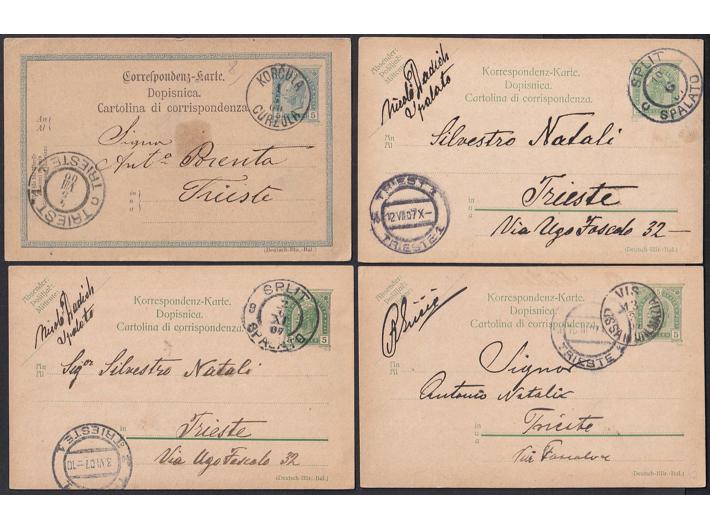 Correspondenz-Karte.
Dopisnica.
Cartolina di corrispondenza.
KORČULA
CURZOLA
5
An
Al
Signa
Ant.a Brenta
Trieste
TRIESTE 1
TRIEST 1
(Deutsch-Illir.-Ital.)
Absender:
Nicolò Radich
Spalato
Korrespondenz-Karte.
Dopisnica.
Cartolina di corrispondenza.
SPLIT
SPALATO
5
An
Al
Silvestro Natali
TRIEST 1
12 VII 07 X-
TRIESTE 1
Trieste
Via Ugo Foscolo 32
(Deutsch-Illir.-Ital.)
Absender:
Nicolò Radich
Spalato
Korrespondenz-Karte.
Dopisnica.
Cartolina di corrispondenza.
SPLIT
SPALATO
5
An
Al
Sigor Silvestro Natali
Trieste
Via Ugo Foscolo 32
TRIESTE 1
3.VI 07-10
(Deutsch-Illir.-Ital.)
Absender:
Korrespondenz-Karte.
Dopisnica.
Cartolina di corrispondenza.
VIS
LISSA
TRIESTE 1
5
An
Al
Signor
Antonio Natali
Trieste
(Deutsch-Illir.-Ital.)